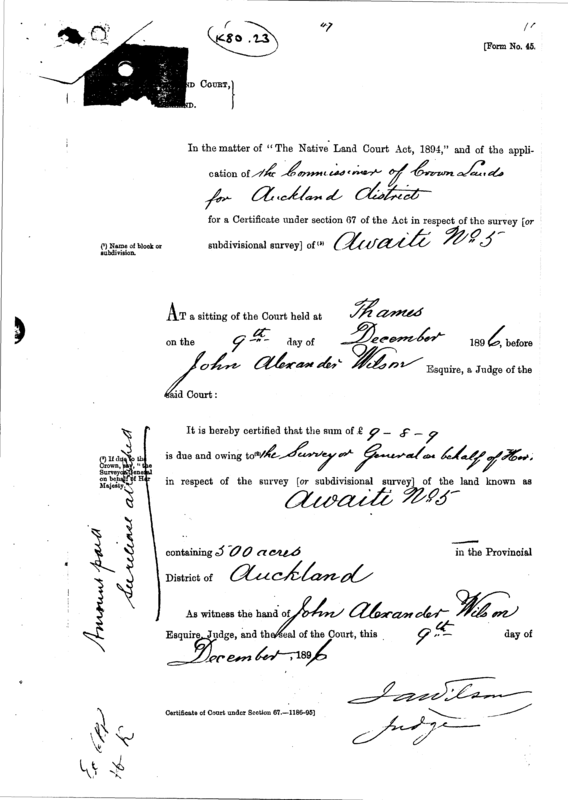 K80.23
47
[Form No. 45.
ND COURT,
ND.
In the matter of "The Native Land Court Act, 1894," and of the appli-
cation of the Commissioner of Crown Lands
for Auckland district
for a Certificate under section 67 of the Act in respect of the survey [or
subdivisional survey] of (¹) Awaiti No. 5
(¹) Name of block or
subdivision.
AT a sitting of the Court held at Thames
on the 9th day of December 1896, before
John Alexander Wilson Esquire, a Judge of the
said Court:
It is hereby certified that the sum of £ 9-8-9
is due and owing to (²) the Surveyor General on behalf of Her
in respect of the survey [or subdivisional survey] of the land known as
Awaiti No. 5
(²) If due to the
Crown, say, "the
Surveyor-General
on behalf of Her
Majesty.
containing 500 acres in the Provincial
District of Auckland
As witness the hand of John Alexander Wilson
Esquire, Judge, and the seal of the Court, this 9th day of
December, 1896
JAWilson
Judge
Certificate of Court under Section 67.—1186-95]
Amount paid
See release attached